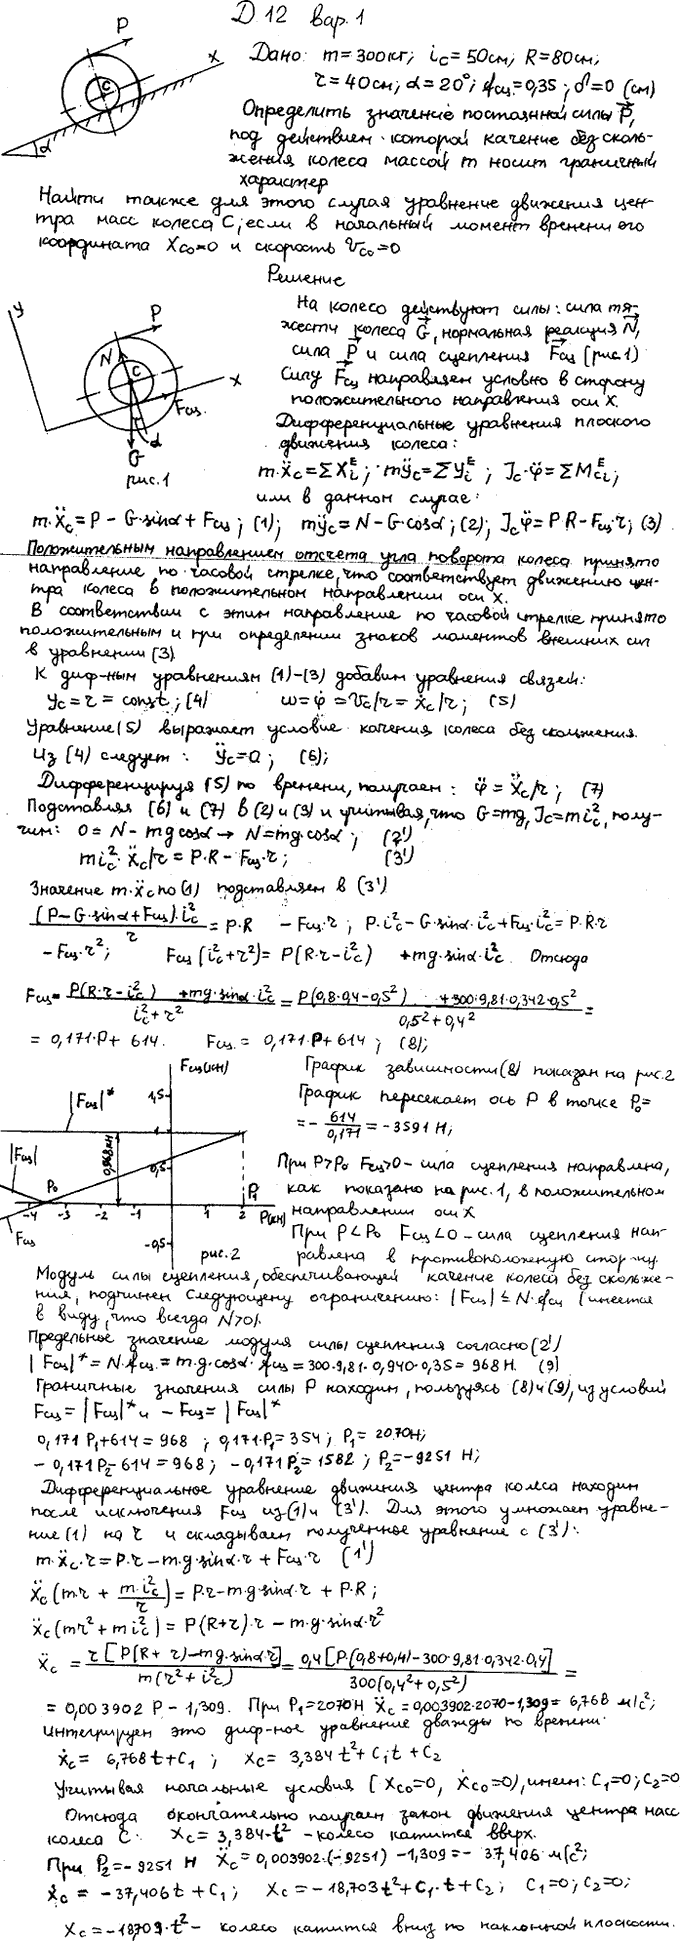 Д 12 вар. 1
P
x
C
α
Дано: m=300кг; i_C=50см; R=80см;
r=40см; α=20°; f_сц=0,35; δ=0 (см)
Определить значение постоянной силы P,
под действием которой качение без сколь-
жения колеса массой m носит граничный
характер
Найти также для этого случая уравнение движения цен-
тра масс колеса C, если в начальный момент времени его
координата X_C0=0 и скорость V_C0=0
Решение
y
P
N
C
x
F_сц.
α
G
рис.1
На колесо действуют силы: сила тя-
жести колеса G, нормальная реакция N,
сила P и сила сцепления F_сц (рис.1)
Силу F_сц направляем условно в сторону
положительного направления оси x.
Дифференциальные уравнения плоского
движения колеса:
m·ẍ_C=ΣX_i^E; mÿ_C=ΣY_i^E; J_C·φ̈=ΣM_Ci^E;
или в данном случае:
m·ẍ_C=P-G·sinα+F_сц; (1); mÿ_C=N-G·cosα; (2); J_Cφ̈=P·R-F_сц·r; (3)
Положительным направлением отсчета угла поворота колеса принято
направление по часовой стрелке, что соответствует движению цен-
тра колеса в положительном направлении оси x.
В соответствии с этим направление по часовой стрелке принято
положительным и при определении знаков моментов внешних сил
в уравнении (3)
К диф-ным уравнениям (1)-(3) добавим уравнения связей:
y_C=r=const; (4) ω=φ̇=V_C/r=ẋ_C/r; (5)
Уравнение (5) выражает условие качения колеса без скольжения.
Из (4) следует: ÿ_C=0; (6);
Дифференцируя (5) по времени, получаем: φ̈=ẍ_C/r; (7)
Подставляя (6) и (7) в (2) и (3) и учитывая, что G=mg, J_C=mi_C², полу-
чим: 0=N-mgcosα→N=mg·cosα; (2')
mi_C²·ẍ_C/r=P·R-F_сц·r; (3')
Значение m·ẍ_C по (1) подставляем в (3')
(P-G·sinα+F_сц)·i_C²/r=P·R -F_сц·r; P·i_C²-G·sinα·i_C²+F_сц·i_C²=P·R·r
-F_сц·r²; F_сц(i_C²+r²)=P(R·r-i_C²) +mg·sinα·i_C². Отсюда
F_сц=(P(R·r-i_C²) +mg·sinα·i_C²)/(i_C²+r²)=(P(0,8·0,4-0,5²) +300·9,81·0,342·0,5²)/(0,5²+0,4²)=
=0,171·P+614. F_сц=0,171·P+614; (8);
F_сц(кН)
|F_сц|*
1,5
1
0,968кН
0,5
|F_сц|
P_0
P_1
-4 -3 -2 -1 1 2 P(кН)
F_сц
-0,5
рис.2
График зависимости (8) показан на рис.2
График пересекает ось P в точке P_0=
=-614/0,171=-3591 Н;
При P>P_0 F_сц>0-сила сцепления направлена,
как показано на рис.1, в положительном
направлении оси x
При P<P_0 F_сц<0-сила сцепления нап-
равлена в противоположную стор-ну.
Модуль силы сцепления, обеспечивающей качение колеса без скольже-
ния, подчинен следующему ограничению: |F_сц|≤N·f_сц (имеется
в виду, что всегда N>0).
Предельное значение модуля силы сцепления согласно (2')
|F_сц|*=N·f_сц=m·g·cosα·f_сц=300·9,81·0,940·0,35=968Н. (9)
Граничные значения силы P находим, пользуясь (8) и (9), из условий
F_сц=|F_сц|* и -F_сц=|F_сц|*
0,171P_1+614=968; 0,171·P_1=354; P_1=2070Н;
-0,171P_2-614=968; -0,171P_2=1582; P_2=-9251 Н;
Дифференциальное уравнение движения центра колеса находим
после исключения F_сц из (1) и (3'). Для этого умножаем уравне-
ние (1) на r и складываем полученное уравнение с (3'):
m·ẍ_C·r=P·r-m·g·sinα·r+F_сц·r (1')
ẍ_C(mr+m·i_C²/r)=P·r-m·g·sinα·r+P·R;
ẍ_C(mr²+mi_C²)=P(R+r)·r-m·g·sinα·r²
ẍ_C=r[P(R+r)-mg·sinα·r]/(m(r²+i_C²))=0,4[P·(0,8+0,4)-300·9,81·0,342·0,4]/(300(0,4²+0,5²))=
=0,003902 P-1,309. При P_1=2070Н ẍ_C=0,003902·2070-1,309=6,768 м/с²;
Интегрируем это диф-ное уравнение дважды по времени:
ẋ_C=6,768t+C_1; x_C=3,384t²+C_1t+C_2
Учитывая начальные условия (X_C0=0, Ẋ_C0=0), имеем: C_1=0; C_2=0
Отсюда окончательно получаем закон движения центра масс
колеса C: x_C=3,384·t²-колесо катится вверх.
При P_2=-9251 Н ẍ_C=0,003902·(-9251)-1,309=-37,406 м/с²;
ẋ_C=-37,406t+C_1; x_C=-18,703t²+C_1·t+C_2; C_1=0; C_2=0;
x_C=-18,703·t²-колесо катится вниз по наклонной плоскости.